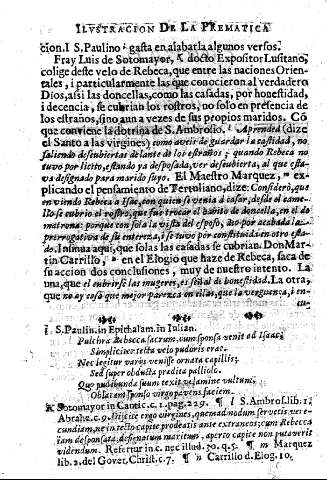 ILVSTRACION DE LA PREMATICA
cion. I S. Paulino i gasta en alabarla algunos versos.
Fray Luis de Sotomayor, K docto Expositor Lusitano,
colige deste velo de Rebeca, que entre las naciones Orien-
tales, i particularmente las que conocieron al verdadero
Dios, assi las doncellas, como las casadas, por honestidad,
i decencia, se cubrian los rostros, no solo en presencia de
los estraños, sino aun a vezes de sus propios maridos. Cô
que conviene la dotrina de S. Ambrosio. l Aprended (dize
el Santo a las virgines) como aveis de guardar la castidad, no
saliendo descubiertas delante de los estraños; quando Rebeca no
tuvo por licito, estando ya desposada, ver descubierta, al que esta-
va destinado para marido suyo. El Maestro Marquez, m
explicando el pensamiento de Tertoliano, dize: Considerò, que
en viendo Rebeca a Isac, con quien se venia a casar, desde el came-
llo se cubrio el rostro, que fue trocar el habito de doncella, en el de
matrona: porque con sola la vista del esposo, dio por acabada la
prerrogativa de su entereza, i se tuvo por constituida en otro esta-
do. Insinua aqui, que solas las casadas se cubrian. Don Mar-
tin Carrillo, n en el Elogio que haze de Rebeca, saca de
su accion dos conclusiones, muy de nuestro intento. La
una, que el cubrirse las mugeres, es señal de honestidad. La otra,
que no ay cosa que mejor parezca en ellas, que la verguença, i en-
cu-
i S. Paulin. in Epithalam. in Iulian.
Pulchra Rebecca sacrum, cum sponsa venit ad Isaac,
Simpliciter tecta velo pudoris erat.
Nec legitur varys venisse ornata capillis;
Sed super obducta predita palliolo.
Quo pudibunda suum texit velamine vultum;
Oblatam sponso virgo pavens faciem.
K Sotomayor in Cantic. c. 1. pag. 229. ¶ l S. Ambros. lib. 1.
Abrahæ. c. 9. Discite ergo virgines, quemadmodum servetis vere-
cundiam, ne intecto capite prodeatis ante extraneos; cum Rebecca
iam desponsata, designatum maritum, aperto capite non putaverit
videndum. Refertur in c. nec illud. 30. q. 5. ¶ m Marquez
lib. 2. del Gover. Christ. c. 7. ¶ n Carrillo d. Elog. 10.